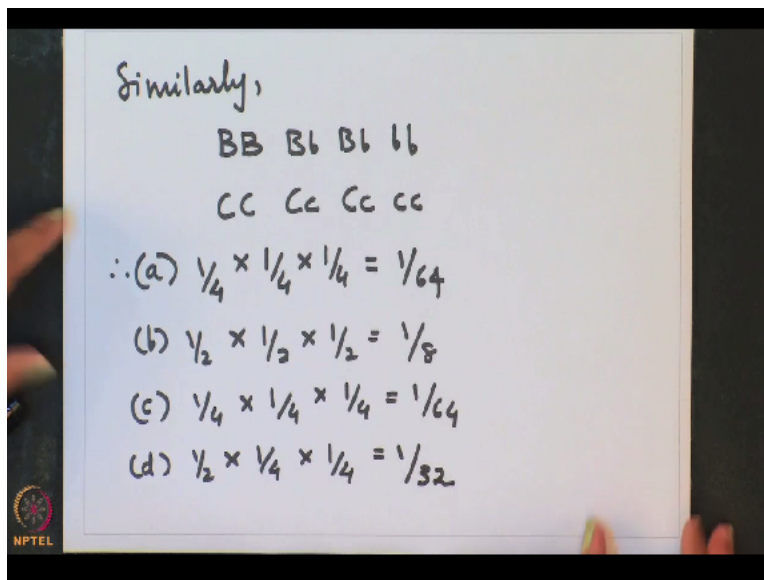 Similarly,
BB Bb Bb bb
CC Cc Cc cc
∴(a) 1/4 × 1/4 × 1/4 = 1/64
(b) 1/2 × 1/2 × 1/2 = 1/8
(c) 1/4 × 1/4 × 1/4 = 1/64
(d) 1/2 × 1/4 × 1/4 = 1/32
NPTEL